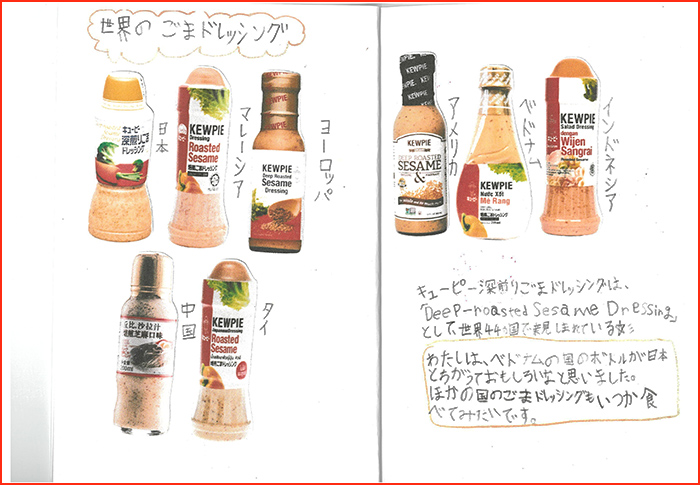 世界の ごまドレッシング
キユーピー
深煎りごま
ドレッシング
日本
KEWPIE
Dressing
Roasted
Sesame
マレーシア
KEWPIE
KEWPIE
Deep Roasted
Sesame
Dressing
ヨーロッパ
丘比 沙拉汁
焙煎芝麻口味
中国
KEWPIE
Roasted
Sesame
タイ
KEWPIE
KEWPIE
DEEP ROASTED
SESAME
&
アメリカ
KEWPIE
Nước Xốt
Mè Rang
ベトナム
KEWPIE
Salad Dressing
dengan
Wijen
Sangrai
Roasted Sesame
インドネシア
キューピー深煎りごまドレッシングは、
「Deep-roasted Sesame Dressing」
として、世界44か国で
わたしは、ベトナムの国のボトルが日本
とちがっておもしろいなと思いました。
ほかの国のごまドレッシングもいつか食
べてみたいです。